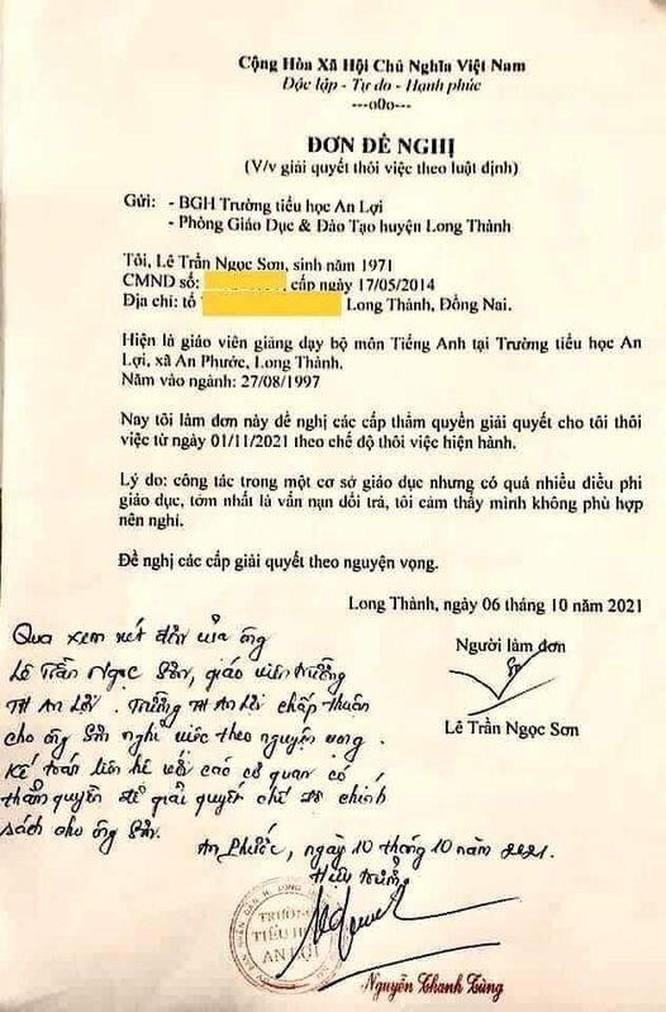 Cộng Hòa Xã Hội Chủ Nghĩa Việt Nam
Độc lập - Tự do - Hạnh phúc
---o0o---
ĐƠN ĐỀ NGHỊ
(V/v giải quyết thôi việc theo luật định)
Gửi: - BGH Trường tiểu học An Lợi
- Phòng Giáo Dục & Đào Tạo huyện Long Thành
Tôi, Lê Trần Ngọc Sơn, sinh năm 1971
CMND số: cấp ngày 17/05/2014
Địa chỉ: tổ Long Thành, Đồng Nai.
Hiện là giáo viên giảng dạy bộ môn Tiếng Anh tại Trường tiểu học An
Lợi, xã An Phước, Long Thành.
Năm vào ngành: 27/08/1997
Nay tôi làm đơn này đề nghị các cấp thẩm quyền giải quyết cho tôi thôi
việc từ ngày 01/11/2021 theo chế độ thôi việc hiện hành.
Lý do: công tác trong một cơ sở giáo dục nhưng có quá nhiều điều phi
giáo dục, tởm nhất là vấn nạn dối trá, tôi cảm thấy mình không phù hợp
nên nghỉ.
Đề nghị các cấp giải quyết theo nguyện vọng.
Long Thành, ngày 06 tháng 10 năm 2021
Người làm đơn
Lê Trần Ngọc Sơn
Qua xem xét đơn của ông
Lê Trần Ngọc Sơn, giáo viên trường
TH An Lợi. Trường TH An Lợi chấp thuận
cho ông Sơn nghỉ việc theo nguyện vọng.
Kế toán liên hệ với các cơ quan có
thẩm quyền để giải quyết chế độ chính
sách cho ông Sơn.
An Phước, ngày 10 tháng 10 năm 2021.
Hiệu trưởng
TRƯỜNG
TIỂU HỌC
AN LỢI
Nguyễn Thanh Tùng